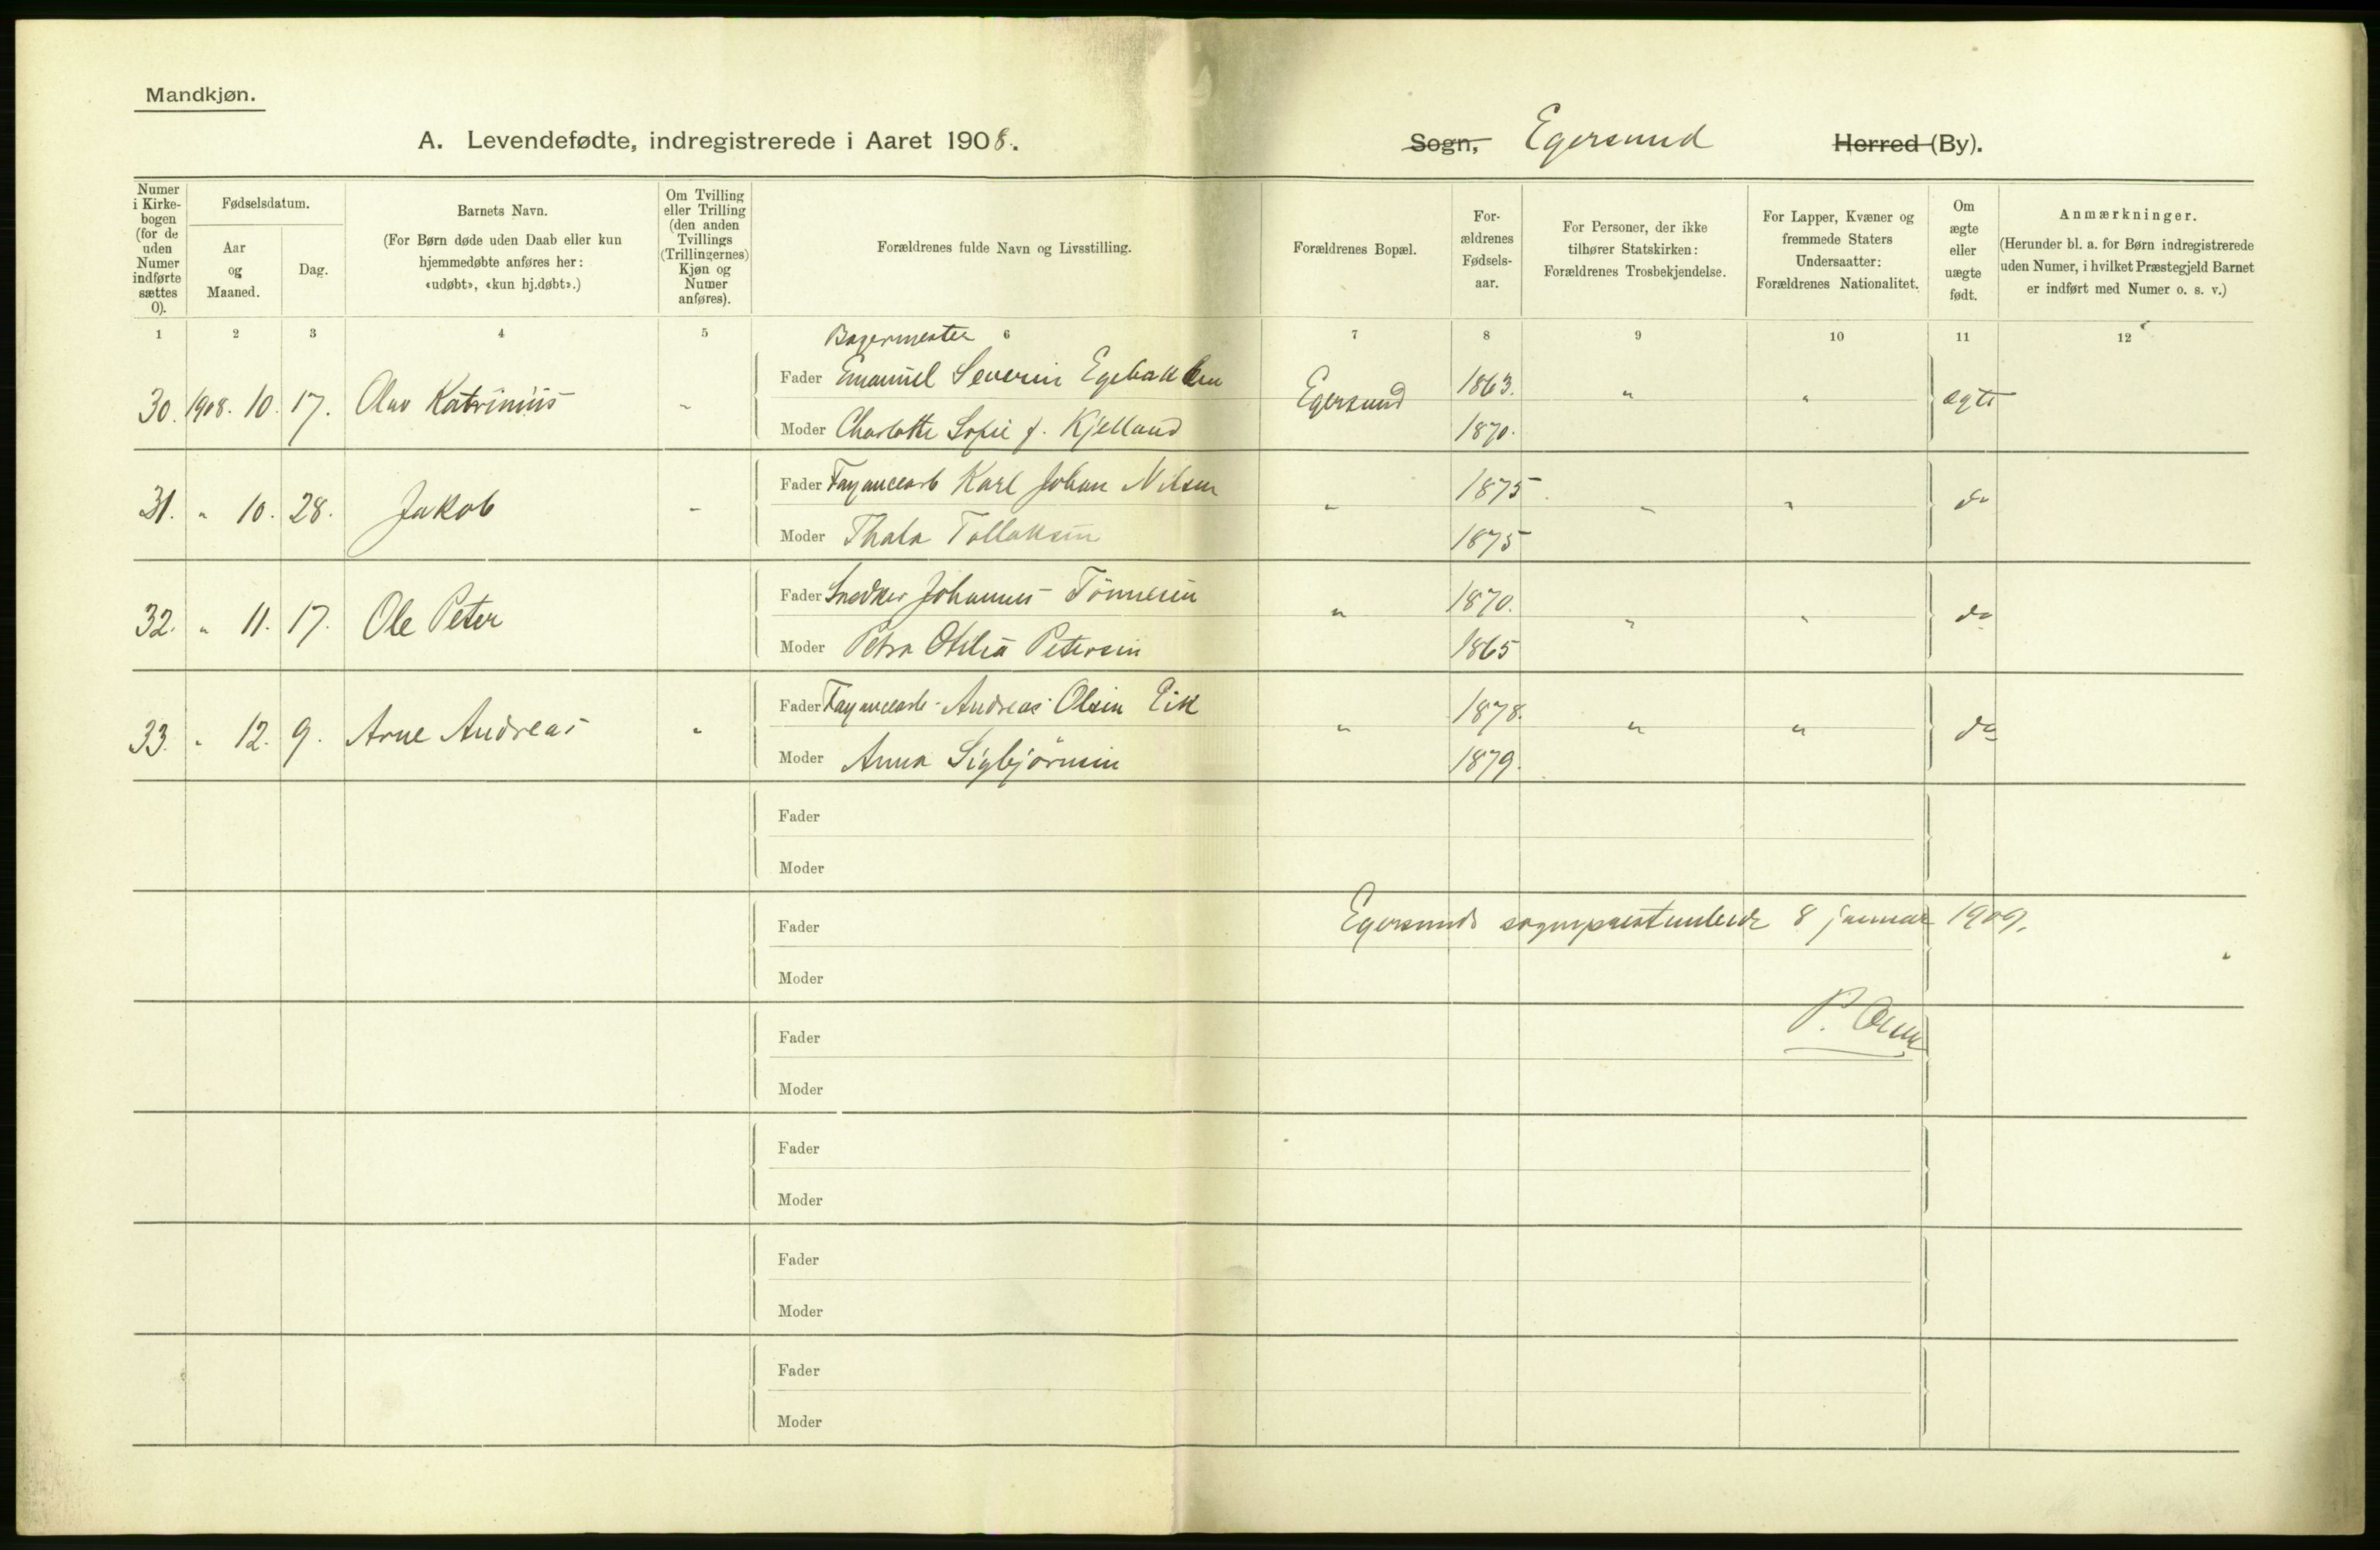 Mandkjøn.
A. Levendefødte, indregistrerede i Aaret 1908.
Sogn, Egersund Herred (By).
Numer i Kirkebogen (for de uden Numer indførte sættes 0).
Fødselsdatum.
Aar og Maaned.
Dag.
Barnets Navn.
(For Børn døde uden Daab eller kun hjemmedøbte anføres her: «udøbt», «kun hj.døbt».)
Om Tvilling eller Trilling (den anden Tvillings (Trillingernes) Kjøn og Numer anføres).
Forældrenes fulde Navn og Livsstilling.
Forældrenes Bopæl.
Forældrenes Fødselsaar.
For Personer, der ikke tilhører Statskirken: Forældrenes Trosbekjendelse.
For Lapper, Kvæner og fremmede Staters Undersaatter: Forældrenes Nationalitet.
Om ægte eller uægte født.
Anmærkninger.
(Herunder bl. a. for Børn indregistrerede uden Numer, i hvilket Præstegjeld Barnet er indført med Numer o. s. v.)
1 2 3 4 5 6 7 8 9 10 11 12
Bagermester
Fader Emanuel Severin Egebakken 1863.
30. 1908. 10. 17. Olav Katrinius - Egersund " " ægte
Moder Charlotte Sofie f. Kjelland 1870.
Fader Fayancearb Karl Johan Nilsen 1875.
31. " 10. 28. Jakob - " " " do
Moder Thala Tollaksen 1875
Fader Snedker Johannes Tönnesen 1870.
32. " 11. 17. Ole Peter " " " do
Moder Petra Otilia Petersen 1865
Fader Fayancearb. Andreas Olsen Eik 1878.
33. " 12. 9. Arne Andreas " " " " do
Moder Anna Sigbjörnsen 1879.
Fader
Moder
Fader
Egersunds sogneprestembede 8 januar 1909.
Moder
P.
Fader
Moder
Fader
Moder
Fader
Moder
Fader
Moder